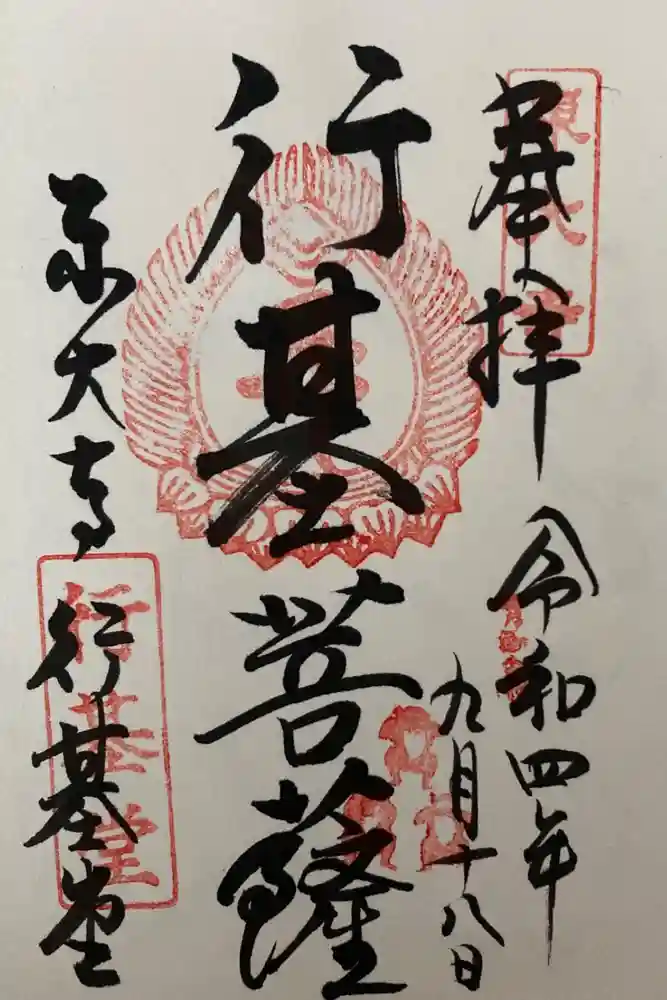 奉拝
東大寺
令和四年
九月十八日
行基菩薩
東大寺
行基堂
行基堂